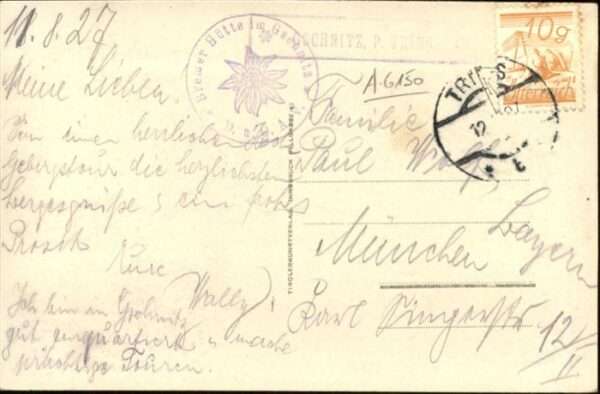 11.8.27
Meine Lieben.
Von einer herrlichen
Gebirgstour die herzlichsten
Bergesgrüße & ein frohs
Prosit
Eure
Wally.
Ich bin in Gschnitz
gut einquartiert u. mache
prächtige Touren.
Bremer Hütte im Gschnitz
GSCHNITZ, P. TRINS
A.6150
10g
Österreich
TRINS
12
Familie
Paul Wolf
München
Bayern
Karl Singerstr
12/II
TIROLER KUNSTVERLAG